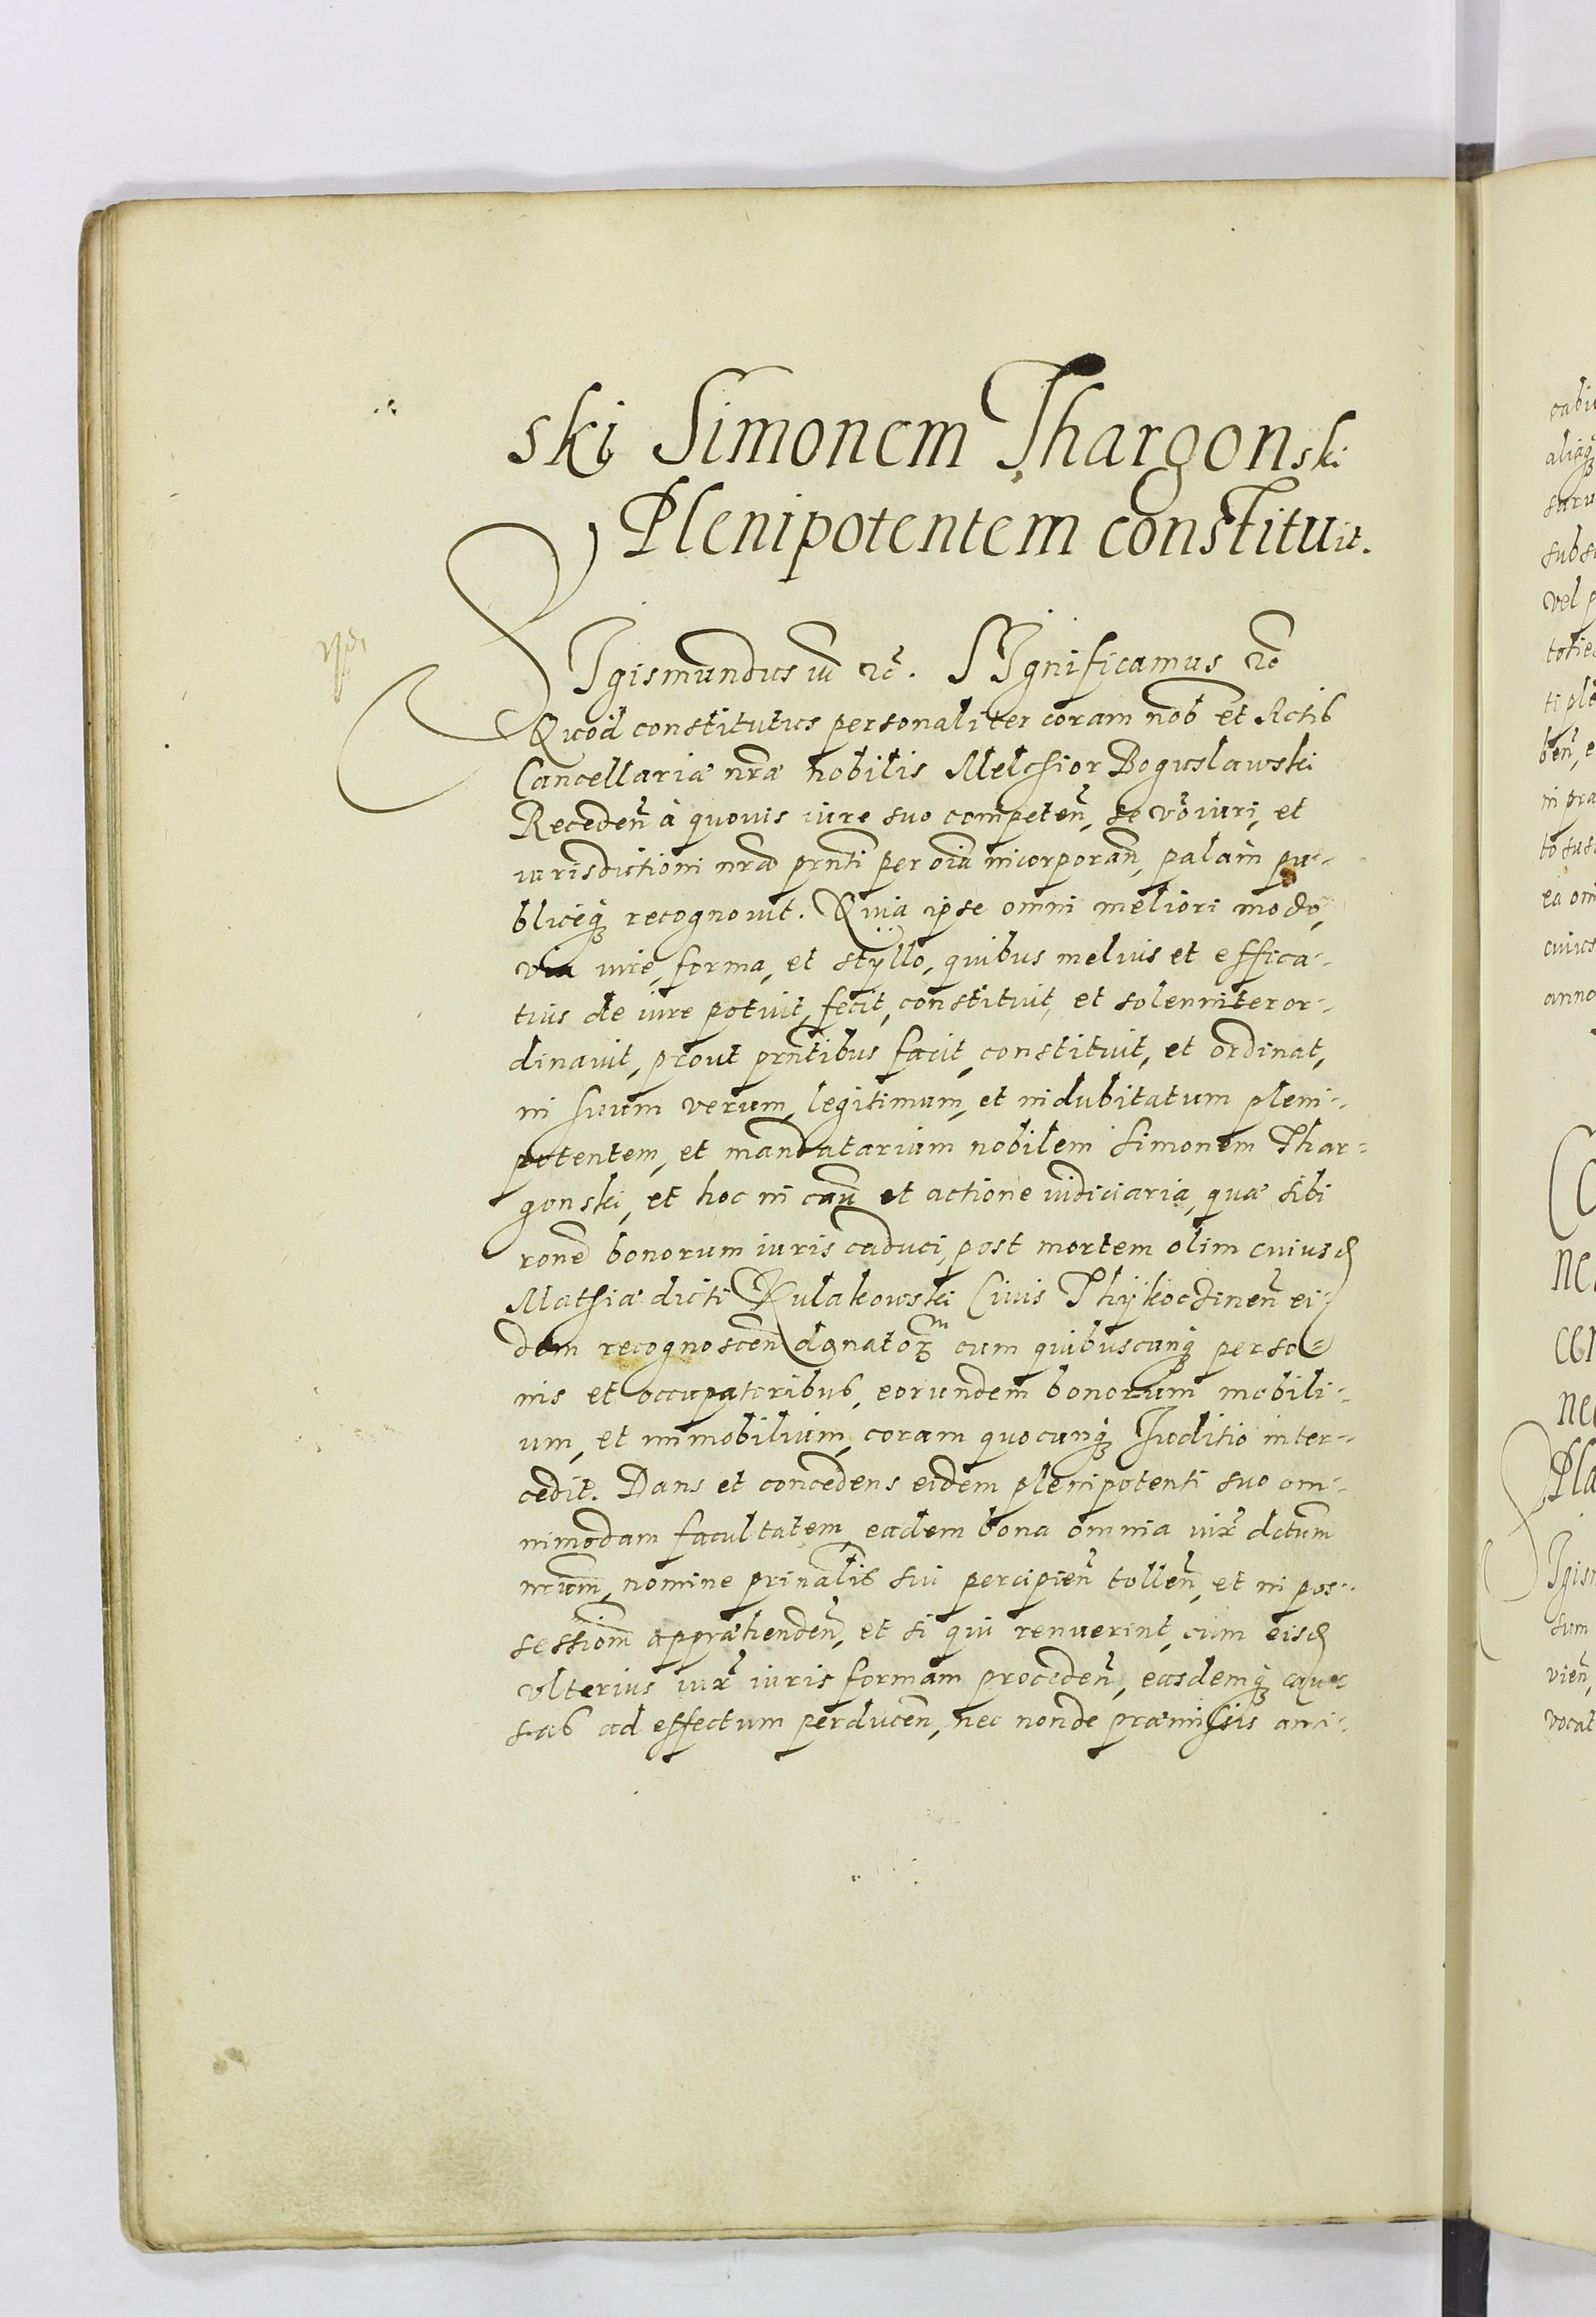 ski Simonem Thargonski
Plenipotentem constituit.
SIgismundus iii etc̃. SIgnificamus etc̃
Quod constitutus personaliter coram nob̃ et Actis
Cancellariæ nr̃æ nobilis Melchior Boguslawski
Receden̄ à quovis iure suo competen̄, se vr̃o iuri, et
iurisdictioni nr̃æ prn̄ti per oīa incorporan̄, palàm pu-
bliceq₃ recognovit. Quia ipse omni meliori modo,
via iure, forma, et stÿllo, quibus melius et effica-
tius de iure potuit, fecit, constituit, et solenniter or-
dinavit, prout prn̄tibus facit, constituit, et ordinat,
in suum verum, legitimum, et indubitatum pleni-
potentem, et mandatarium nobilem Simonem Thar-
gonski, et hoc in cau͂ et actione iudiciaria, quæ sibi
ron̄e bonorum iuris caduci, post mortem olim cuiusd̃
Mathiæ dicti Kulakowski Civis Thÿkochinen̄ ei-
dem recognoscen̄ donator̃m cum quibuscunq₃ perso-
nis et occupatoribus, eorundem bonorum mobili-
um, et immobilium, coram quocunq₃ Juditio inter-
cedit. Dans et concedens eidem plenipotenti suo om-
nimodam facultatem, eadem bona omnia iux̃ dctum
nr̃um, nomine prinālis sui percipien̄ tollen̄, et in pos-
sessiom̄ appræhenden̄, et si qui renuerint, cum eisd̃
ulterius iux̃ iuris formam proceden̄, easdemq₃ cau-
sas ad effectum perducen̄, nec non de præmissis ami-
cabi
aliaq₃
subs
vel p
totie
ti ple
ben̄, e
in pra
ea om
cuius
anno
ne
cer
ne
Pla
Igis
sum
vien̄,
vocat